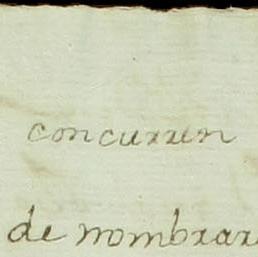 concurren
de nombrar